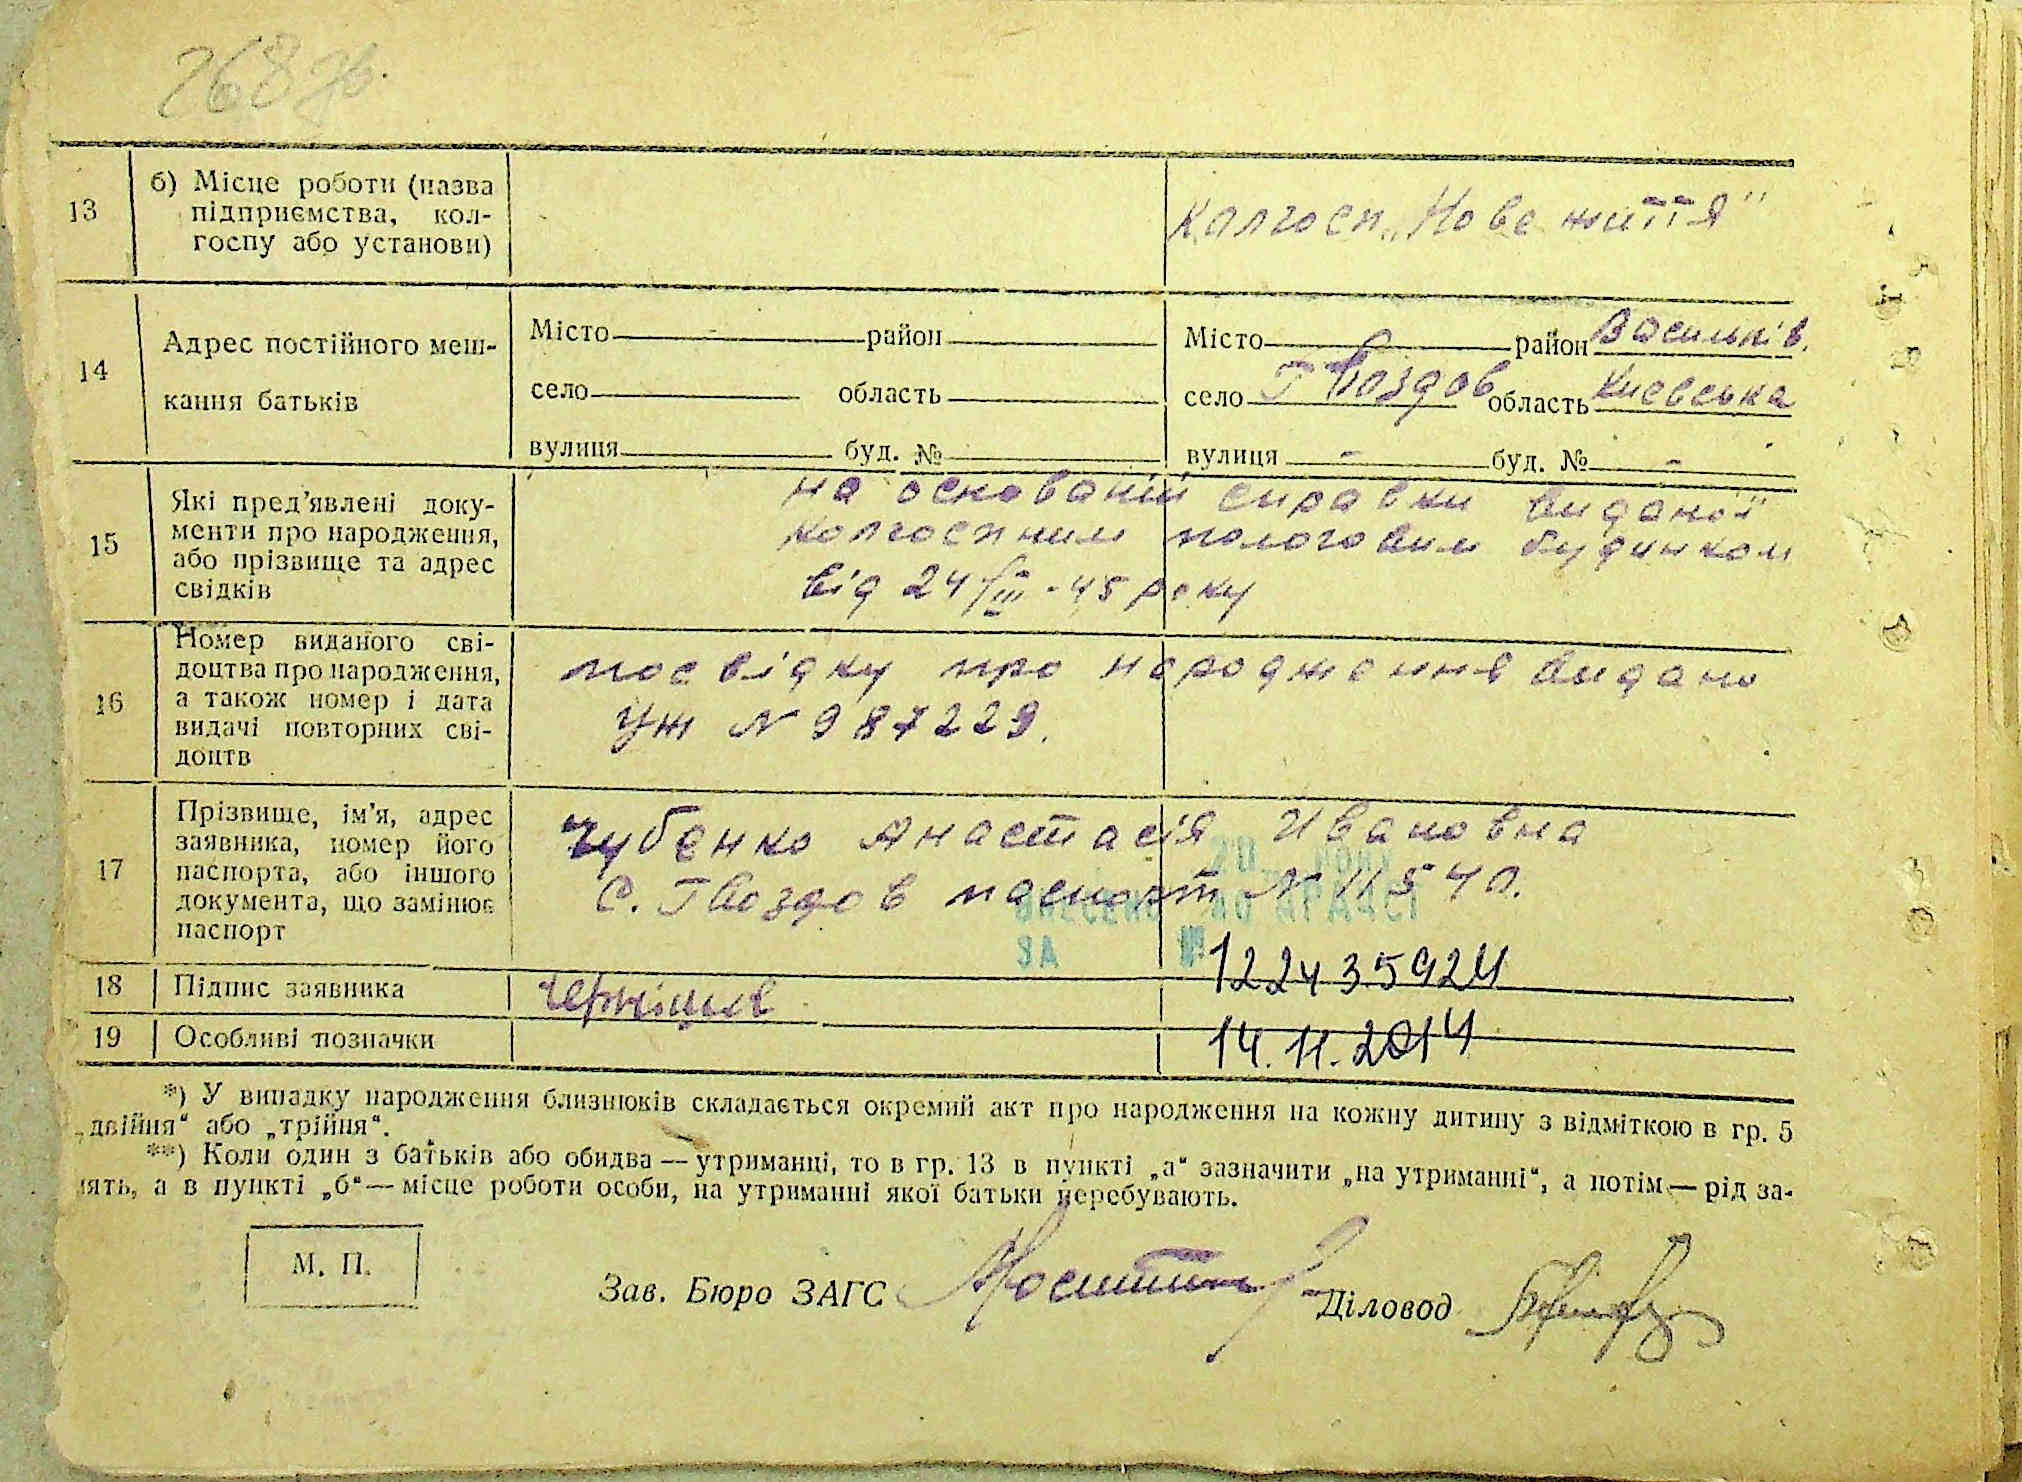 268 зв.
13 б) Місце роботи (назва
підприємства, кол-
госпу або установи)
Колгосп „Нове життя"
14 Адрес постійного меш-
кання батьків
Місто район
село область
вулиця буд. №
Місто район Васильків.
село Гвоздов область Киевська
вулиця - буд. № -
15 Які пред'явлені доку-
менти про народження,
або прізвище та адрес
свідків
на основаній справки виданої
колгоспним пологовим будинком
від 24/III-45 року
16 Номер виданого сві-
доцтва про народження,
а також номер і дата
видачі повторних сві-
доцтв
посвідку про народження видано
УЖ № 987229.
17 Прізвище, ім'я, адрес
заявника, номер його
паспорта, або іншого
документа, що замінює
паспорт
Чубенко Анастасія Ивановна
С. Гвоздов паспорт № 11540.
20 року
ВНЕСЕНО ДО ДРАЦСГ
ЗА № 122435924
18 Підпис заявника
19 Особливі позначки
14.11.2014
*) У випадку народження близнюків складається окремий акт про народження на кожну дитину з відміткою в гр. 5
„двійня“ або „трійня“.
**) Коли один з батьків або обидва — утриманці, то в гр. 13 в пункті „а“ зазначити „на утриманні“, а потім — рід за-
нять, а в пункті „б“ — місце роботи особи, на утриманні якої батьки перебувають.
М. П.
Зав. Бюро ЗАГС Діловод